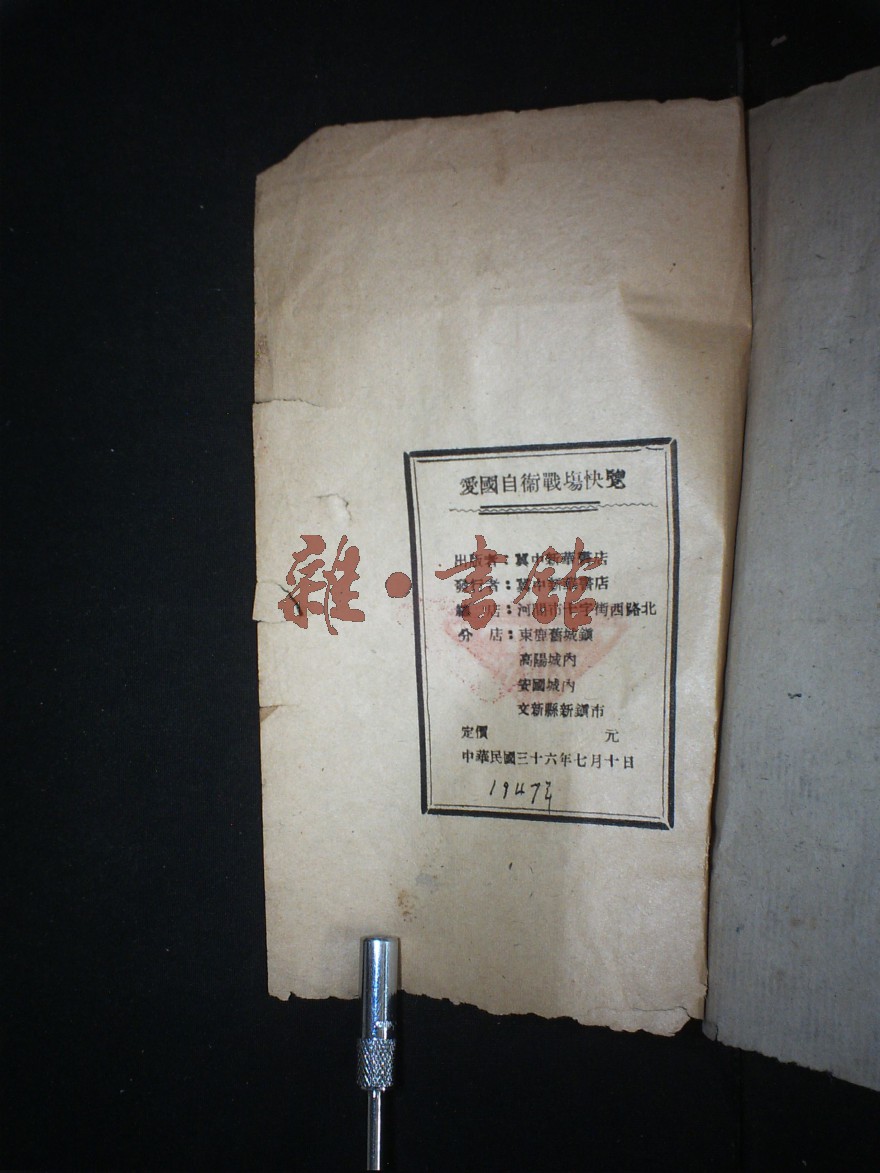 愛國自衛戰場快覽
出版者：冀中新華書店
發行者：冀中新華書店
總 店：河間市十字街西路北
分 店：東鹿舊城鎮
高陽城內
安國城內
文新縣新鎮市
定價 元
中華民國三十六年七月十日
1947
雜·書館